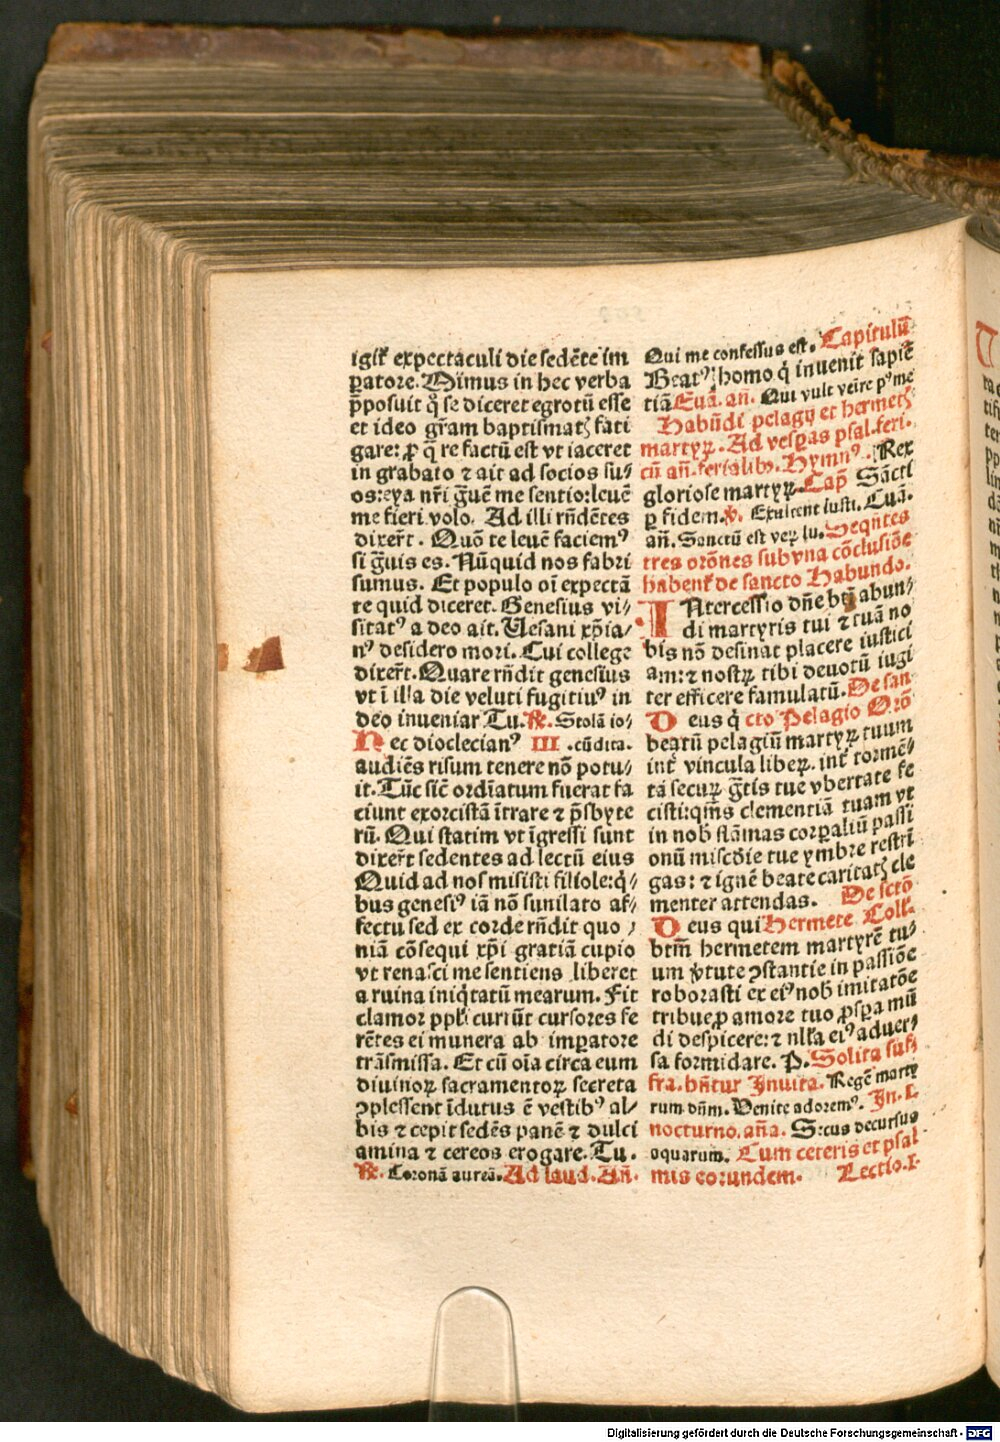 igiť expectaculi die sedēte im
ꝑatore. Mimus in hec verba
ꝓposuit ꝙ se diceret egrotū esse
et ideo gr̄am baptismatꝭ fati
gare: ꝓ q̄ re factū est vt iaceret
in grabato ⁊ ait ad socios su/
os: eya nr̄i ḡuē me sentio: leuē
me fieri volo. Ad illi rn̄dētes
dixer̄t. Quō te leuē faciemꝰ
si ḡuis es. Nūquid nos fabri
sumus. Et populo oī expectā
te quid diceret. Genesius vi/
sitatꝰ a deo ait. Uesani xp̄ia/
nꝰ desidero mori. Cui college
dixer̄t. Quare rn̄dit genesius
vt ī illa die veluti fugitiuꝰ in
deo inueniar Tu. ℟. Stolā io/
Nec dioclecianꝰ III . cūdita.
audiēs risum tenere nō potu/
it. Tūc sic̄ ordīatum fuerat fa
ciunt exorcistā ītrare ⁊ p̄sbyte
rū. Qui statim vt īgressi sunt
dixer̄t sedentes ad lectū eius
Quid ad nos misisti filiole: q̇/
bus genesiꝰ iā nō simlato af/
fectu sed ex corde rn̄dit quo /
niā cōsequi xp̄i gratiā cupio
vt renasci me sentiens liberet
a ruina iniq̇tatū mearum. Fit
clamor ppłi curiūt cursores fe
rētes ei munera ab imꝑatore
trāsmissa. Et cū oīa circa eum
diuinoꝝ sacramentoꝝ secreta
ꝯplessent īdutus ē vestibꝰ al/
bis ⁊ cepit sedēs panē ⁊ dulci
amina ⁊ cereos erogare. Tu.
℟. Coronā aureā. Ad laud. Añ.
Qui me confessus est. Capitulū
Beatꝰ homo q̇ inuenit sapiē
tiā Euā. añ. Qui vult veīre pꝰ me
Habūdi pelagij et hermetꝭ
martyꝝ. Ad vesꝑas psal. feri.
cū añ. ferialibꝰ. Hymnꝰ. Rex
gloriose martyꝝ. Cap̄ Sācti
ꝑ fidem. ℣. Exultent iusti. Euā.
añ. Sanctū est veꝝ lu. Seqn̄tes
tres orōnes sub vna cōclusiōe
habenť de sancto Habundo.
INtercessio dn̄e bt̄i abun/
di martyris tui ⁊ tuā no
bis nō desinat placere iustici
am: ⁊ nostꝝ tibi deuotū iugi
ter efficere famulatū. De san
Deus q̇ cto Pelagio Orō
beatū pelagiū martyꝝ tuum
int̄ vincula libeꝝ. int̄ tormē/
ta secuꝝ g̅tis tue vbertate fe
cisti: qm̄s clementiā tuam vt
in nob̄ flāmas corꝑaliū passi
onū mis̄cdie tue ymbre restrī
gas: ⁊ ignē beate caritatꝭ cle
menter attendas. De sctō
Deus qui Hermete Coll.
btm̄ hermetem martyrē tu/
um v̇tute ꝯstantie in passiōe
roborasti ex eiꝰ nob̄ imitatōe
tribue ꝓ amore tuo ꝓspa mū
di despicere: ⁊ nlła eiꝰ aduer/
sa formidare. P. Solita suf/
fra. hn̄tur Inuita. Regē marty
rum dn̄m. Venite adoremꝰ. In. I.
nocturno. aña. Sicus decursus
aquarum. Cum ceteris et psal
mis eorundem. Lectio. I.
Digitalisierung gefördert durch die Deutsche Forschungsgemeinschaft - DFG